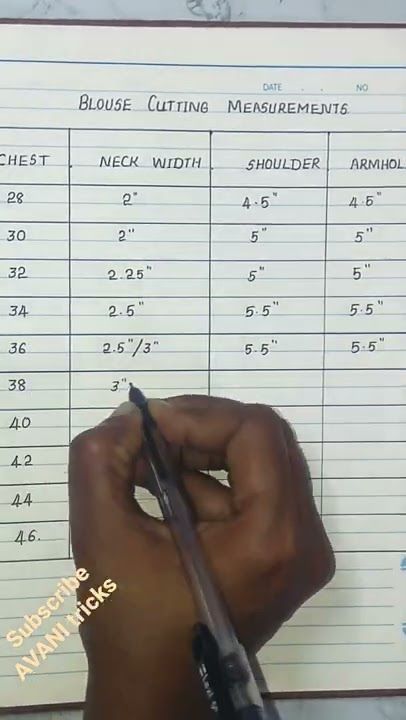 DATE . . NO
BLOUSE CUTTING MEASUREMENTS
CHEST NECK WIDTH SHOULDER ARMHOL
28 2" 4.5" 4.5"
30 2" 5" 5"
32 2.25" 5" 5"
34 2.5" 5.5" 5.5"
36 2.5"/3" 5.5" 5.5"
38 3"
40
42
44
46.
Subscribe
AVANI tricks